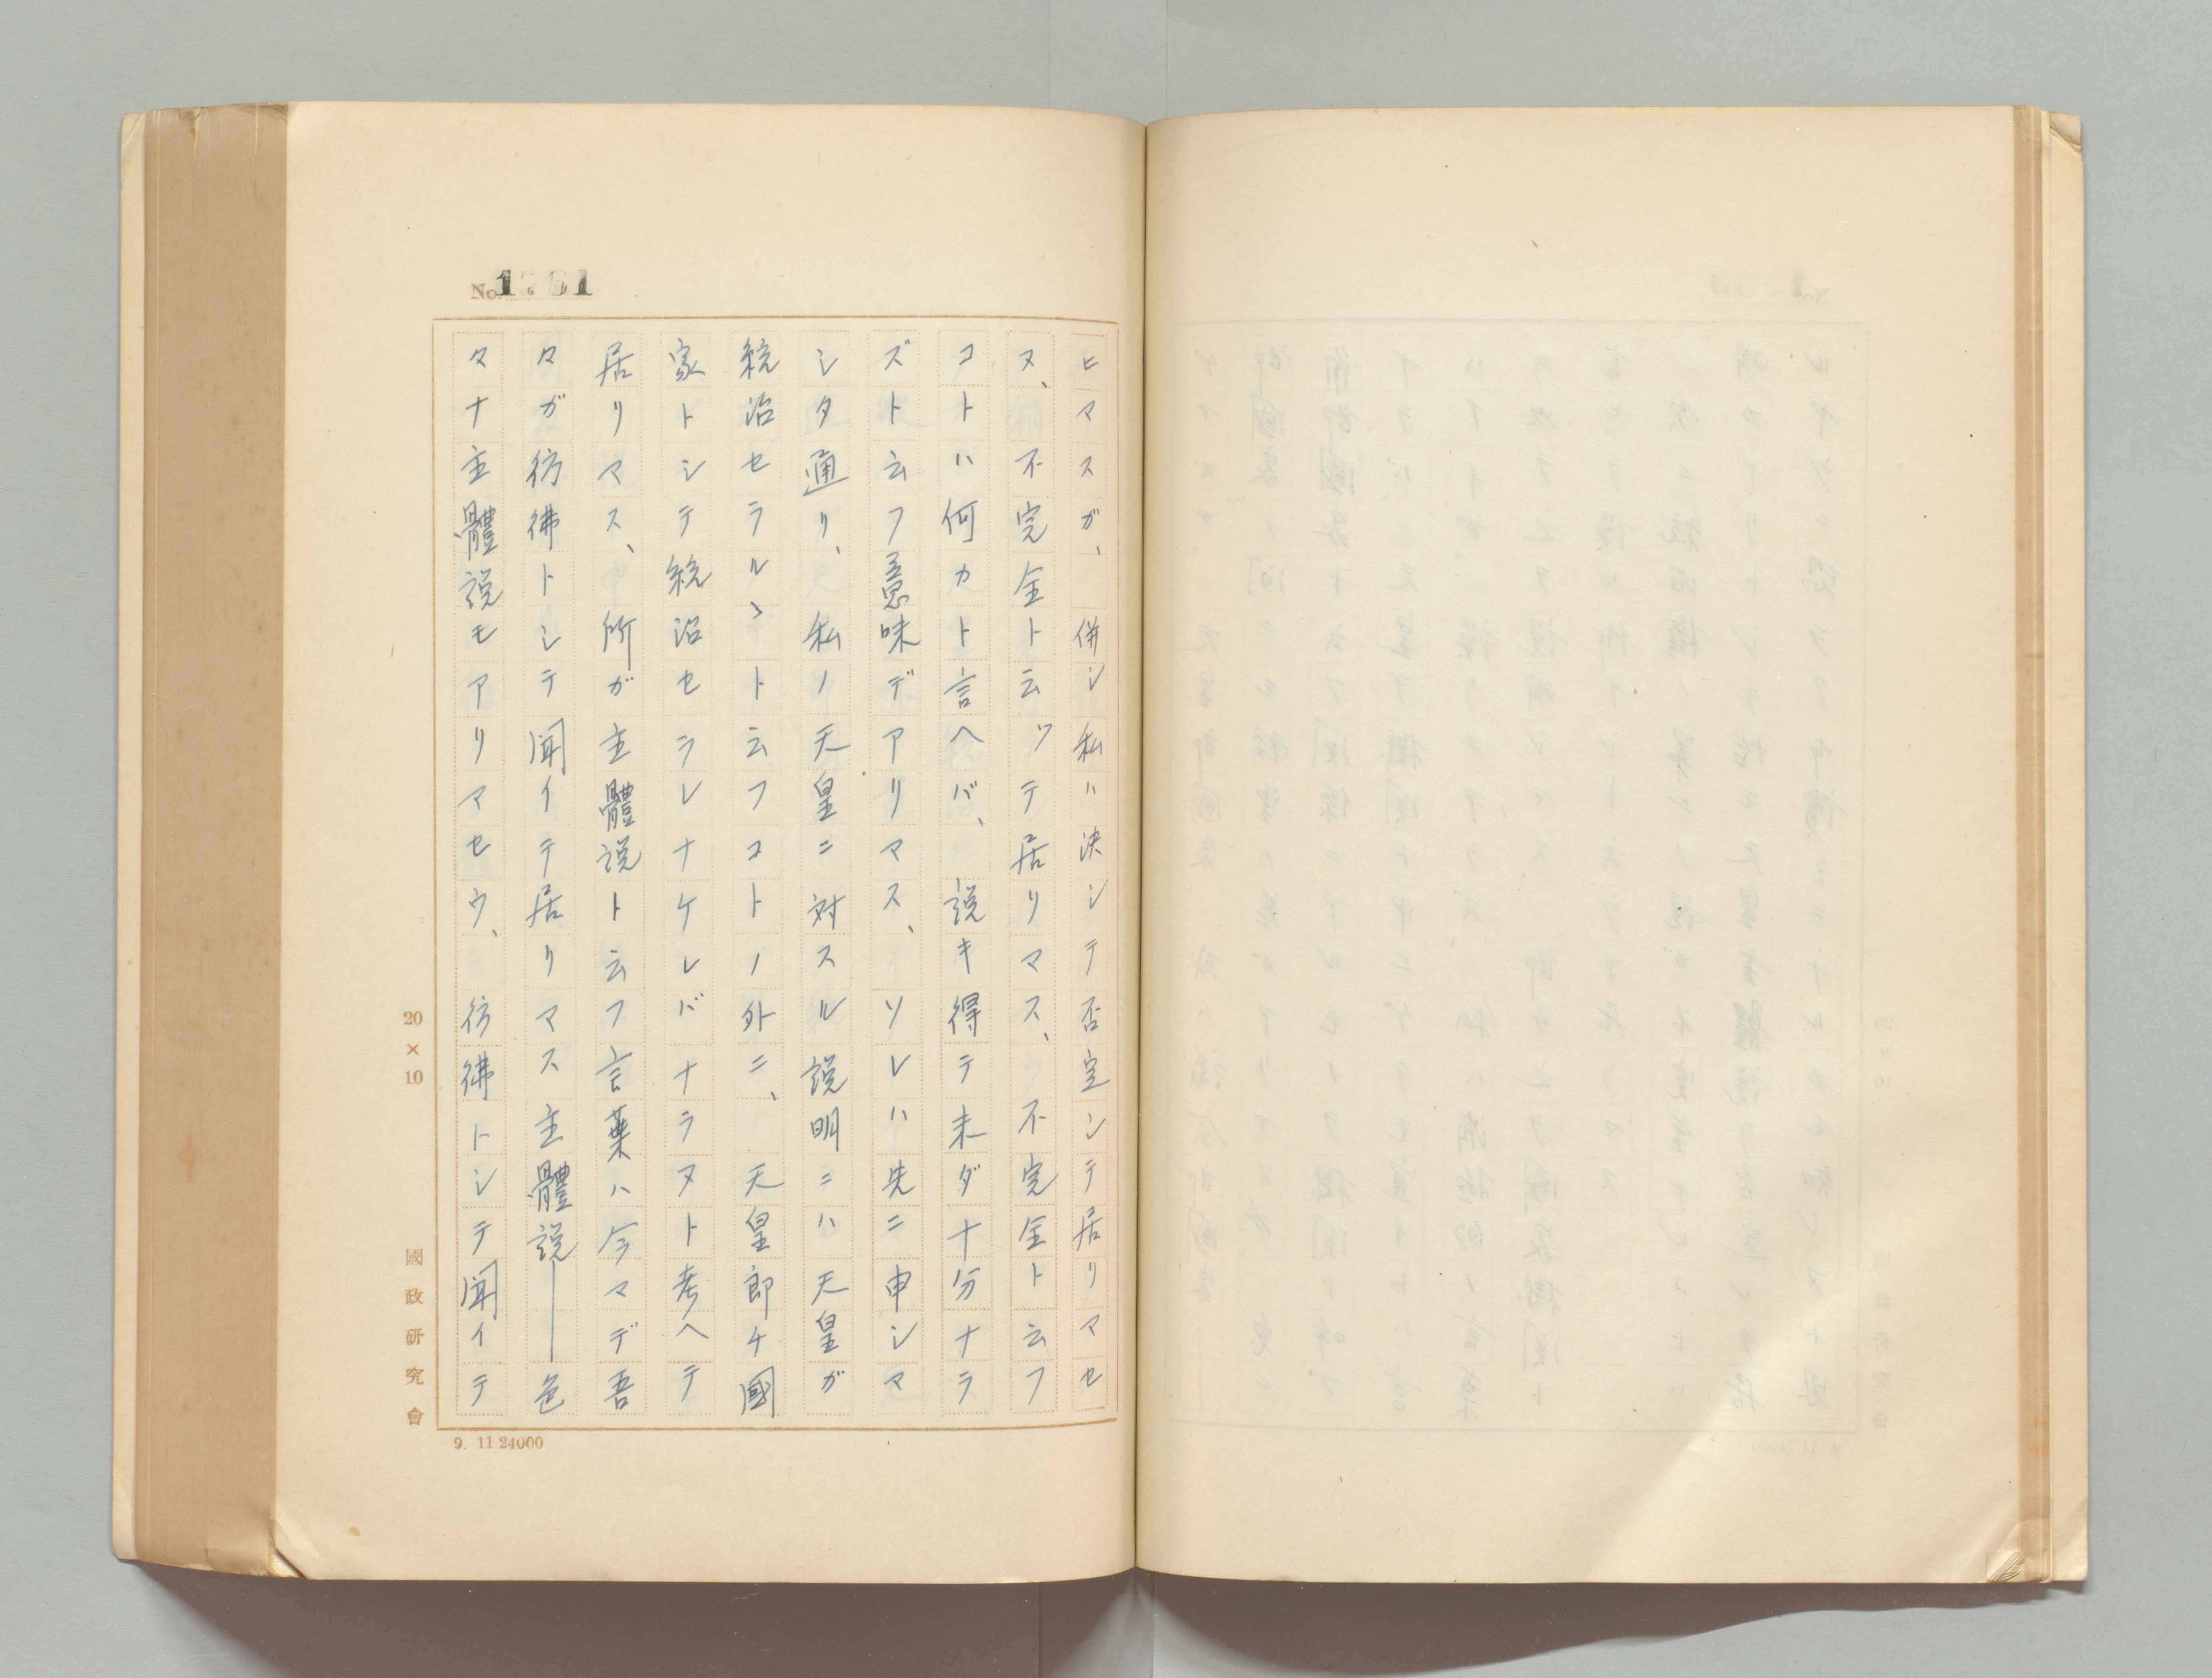 No. 1761
ヒマスガ、併シ私ハ決シテ否定シテ居リマセ
ヌ、不完全ト云ツテ居リマス、不完全ト云フ
コトハ何カト言ヘバ、説キ得テ未ダ十分ナラ
ズト云フ意味デアリマス、ソレハ先ニ申シマ
シタ通リ、私ノ天皇ニ対スル説明ニハ天皇ガ
統治セラルヽト云フコトノ外ニ、天皇即チ國
家トシテ統治セラレナケレバナラヌト考ヘテ
居リマス、所ガ主體説ト云フ言葉ハ今マデ吾
々ガ彷彿トシテ聞イテ居リマス主體説――色
々ナ主體説モアリマセウ、彷彿トシテ聞イテ
20×10
國政研究會
9. 11 24000